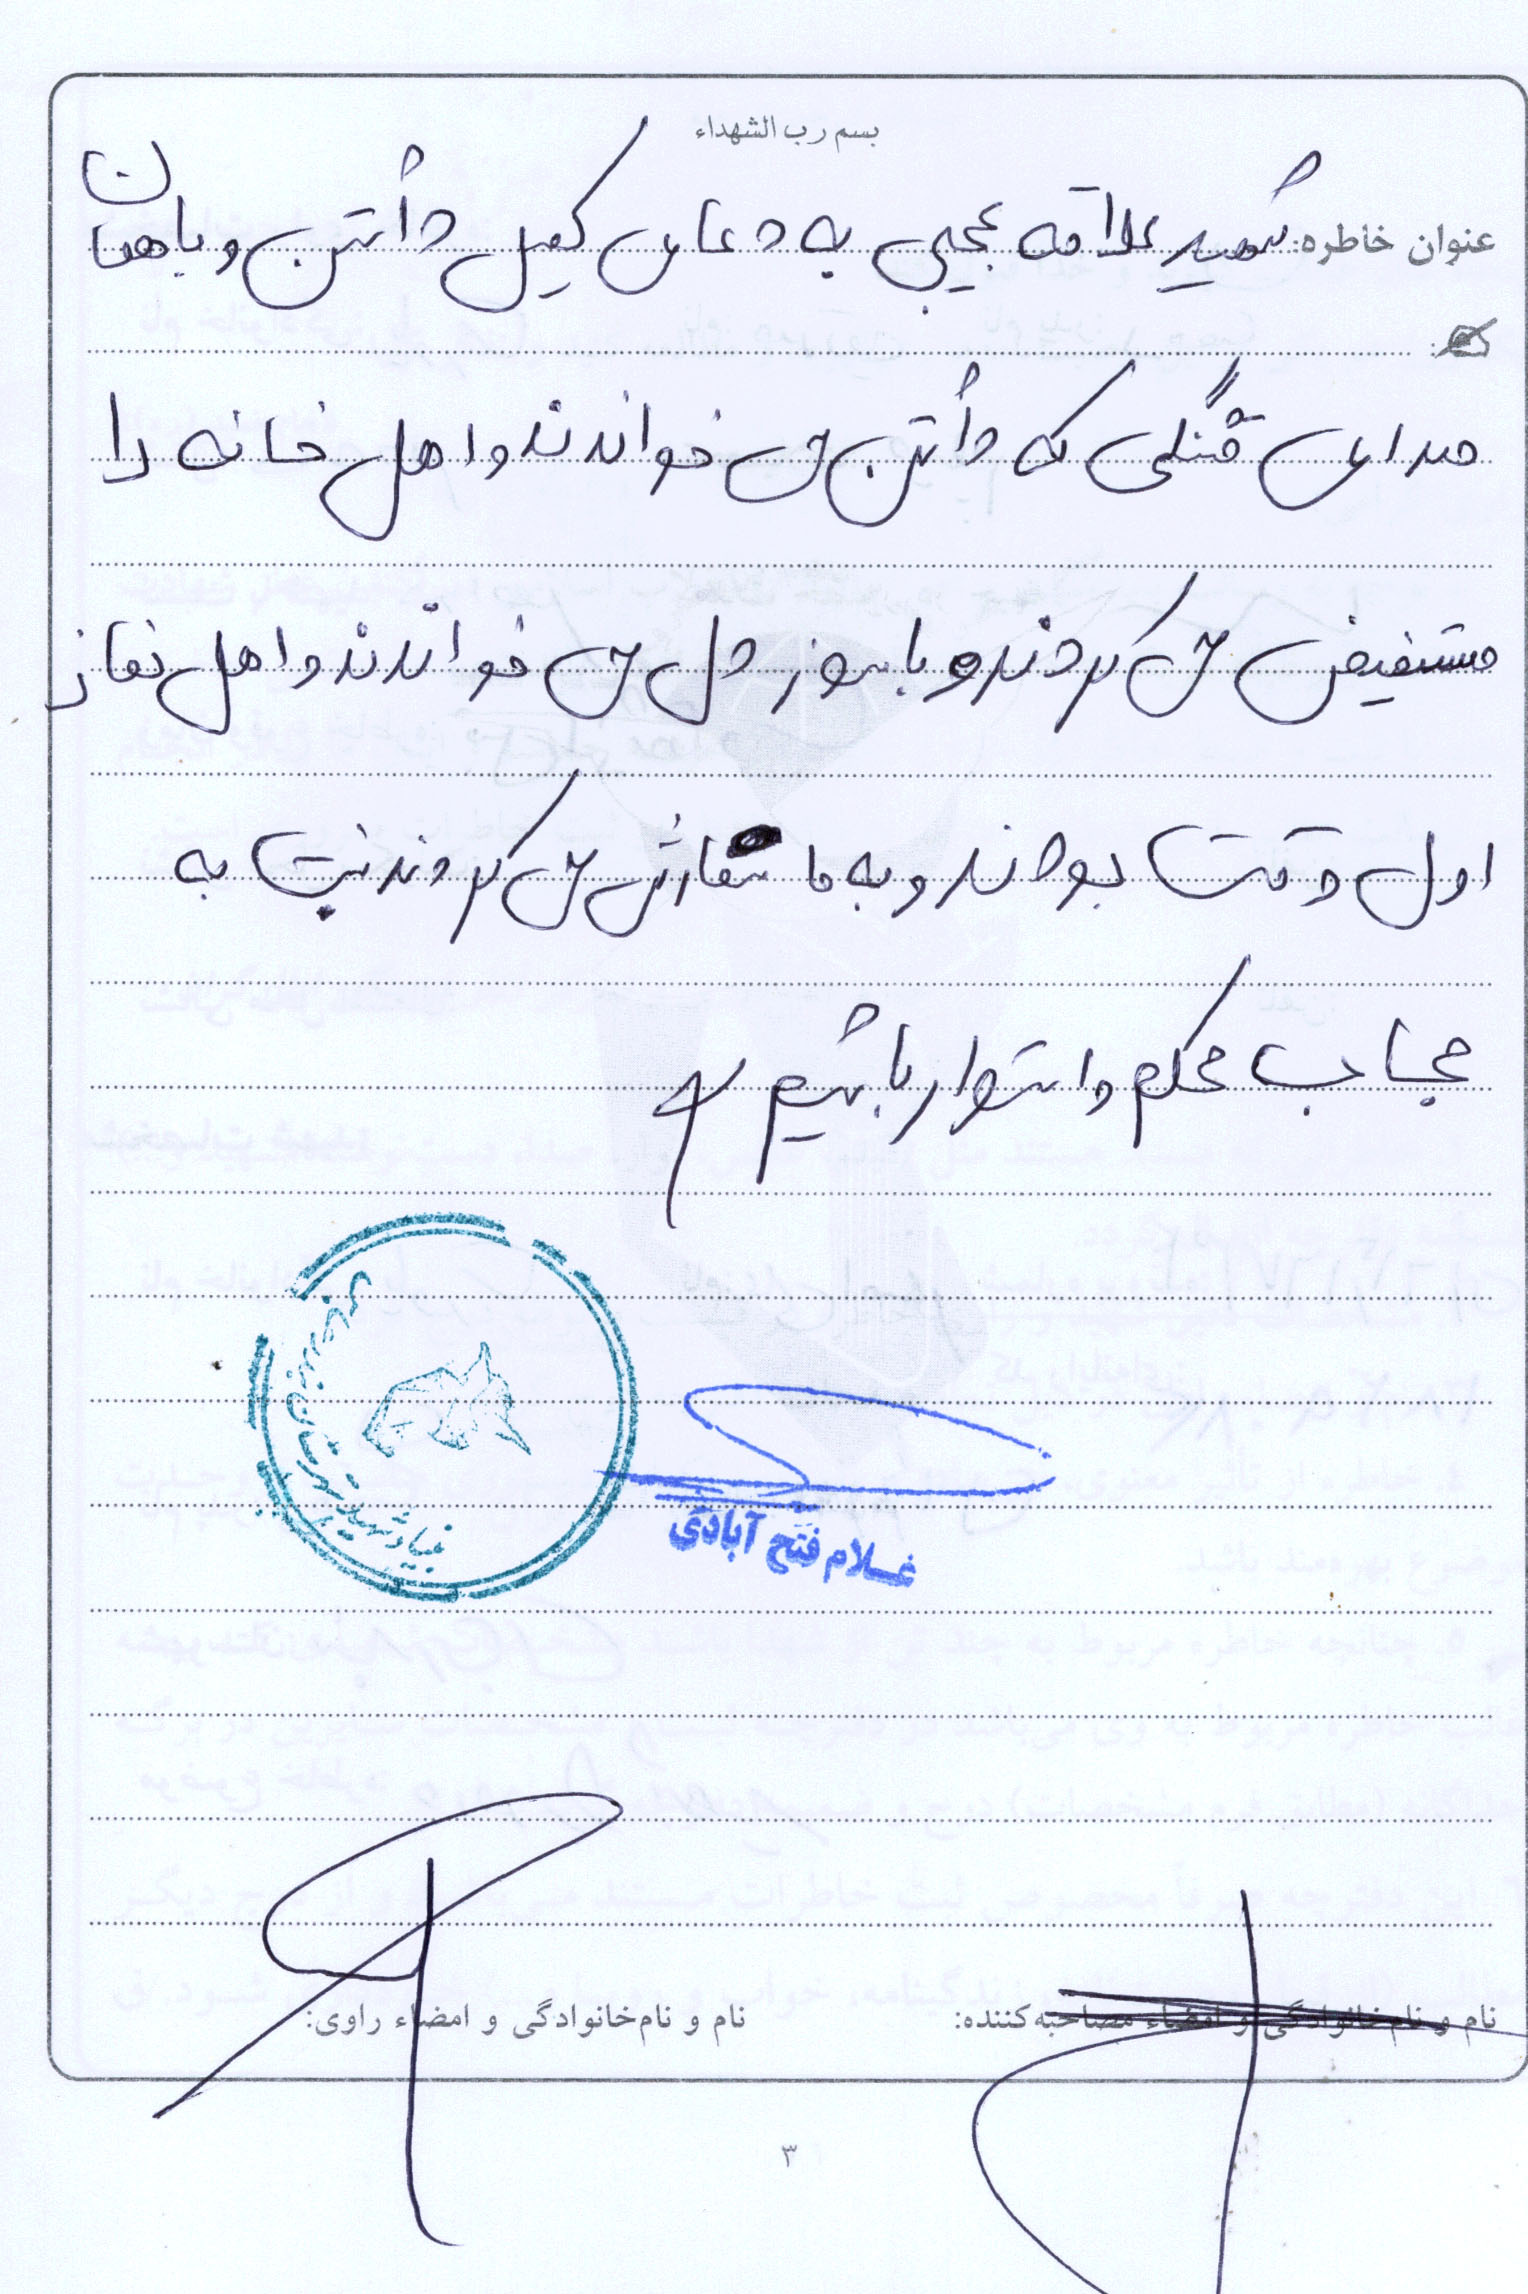 بسم رب الشهداء
عنوان خاطره: شهید علاقه عجیبی به دعای کمیل داشتن و با همان
صدای قشنگی که داشتن می خواندند و اهل خانه را
مستفیض می کردند و با سوز دل می خواندند و اهل نماز
اول وقت بودند و به ما سفارش می کردند نسبت به
حجاب محکم و استوار باشیم
بنیاد شهید
غلام فتح آبادی
نام و نام‌خانوادگی و امضاء مصاحبه‌کننده:
نام و نام‌خانوادگی و امضاء راوی:
۳